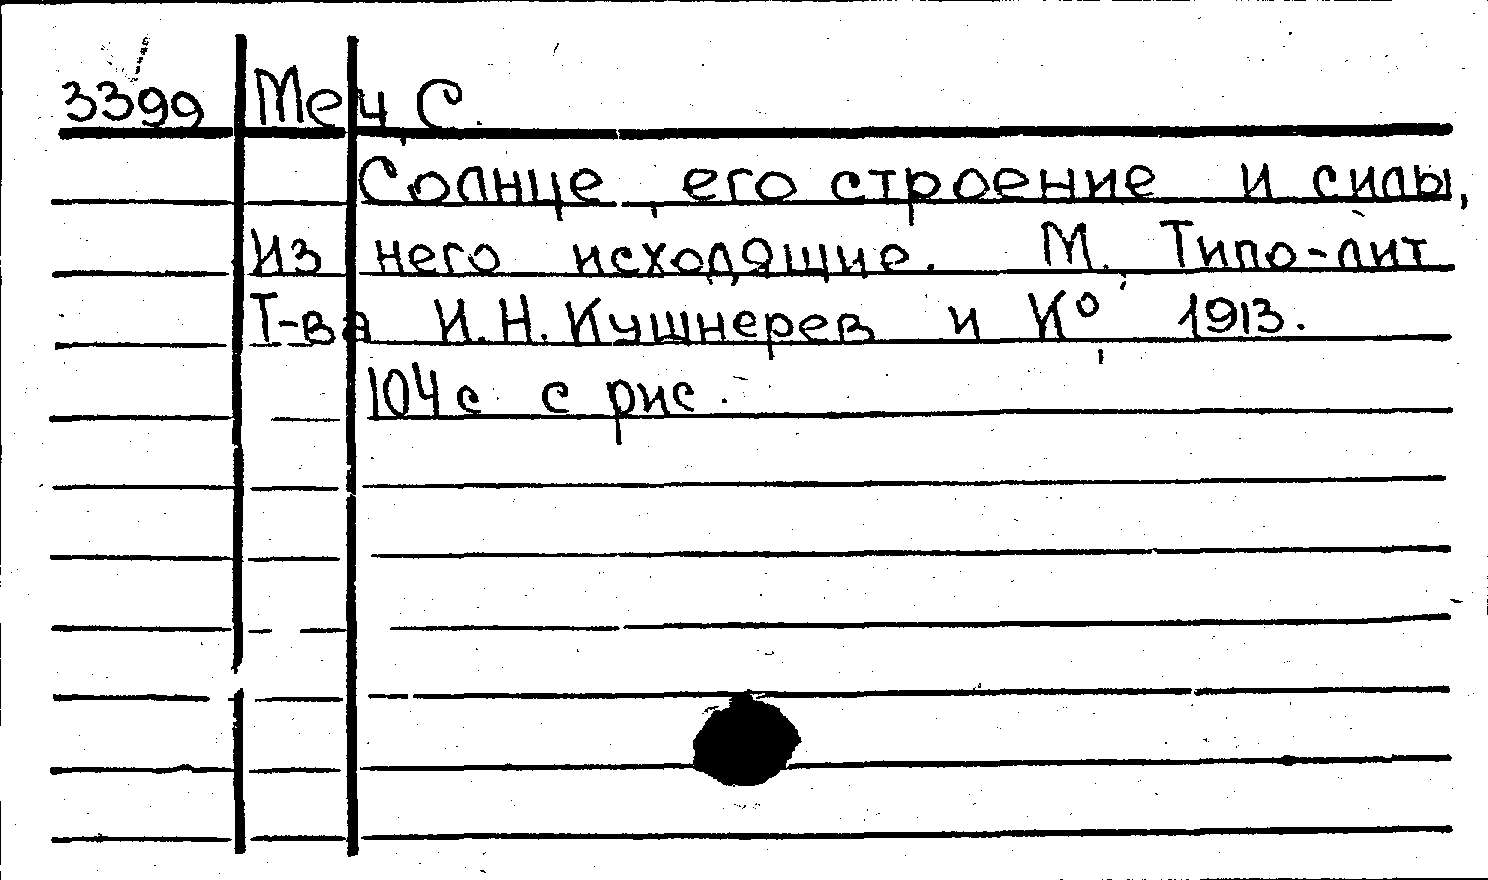 3399 Меч, С.
Солнце, его строение и силы,
из него исходящие. М., Типо-лит
Т-ва И.Н. Кушнерев и К°, 1913.
104 с с рис.